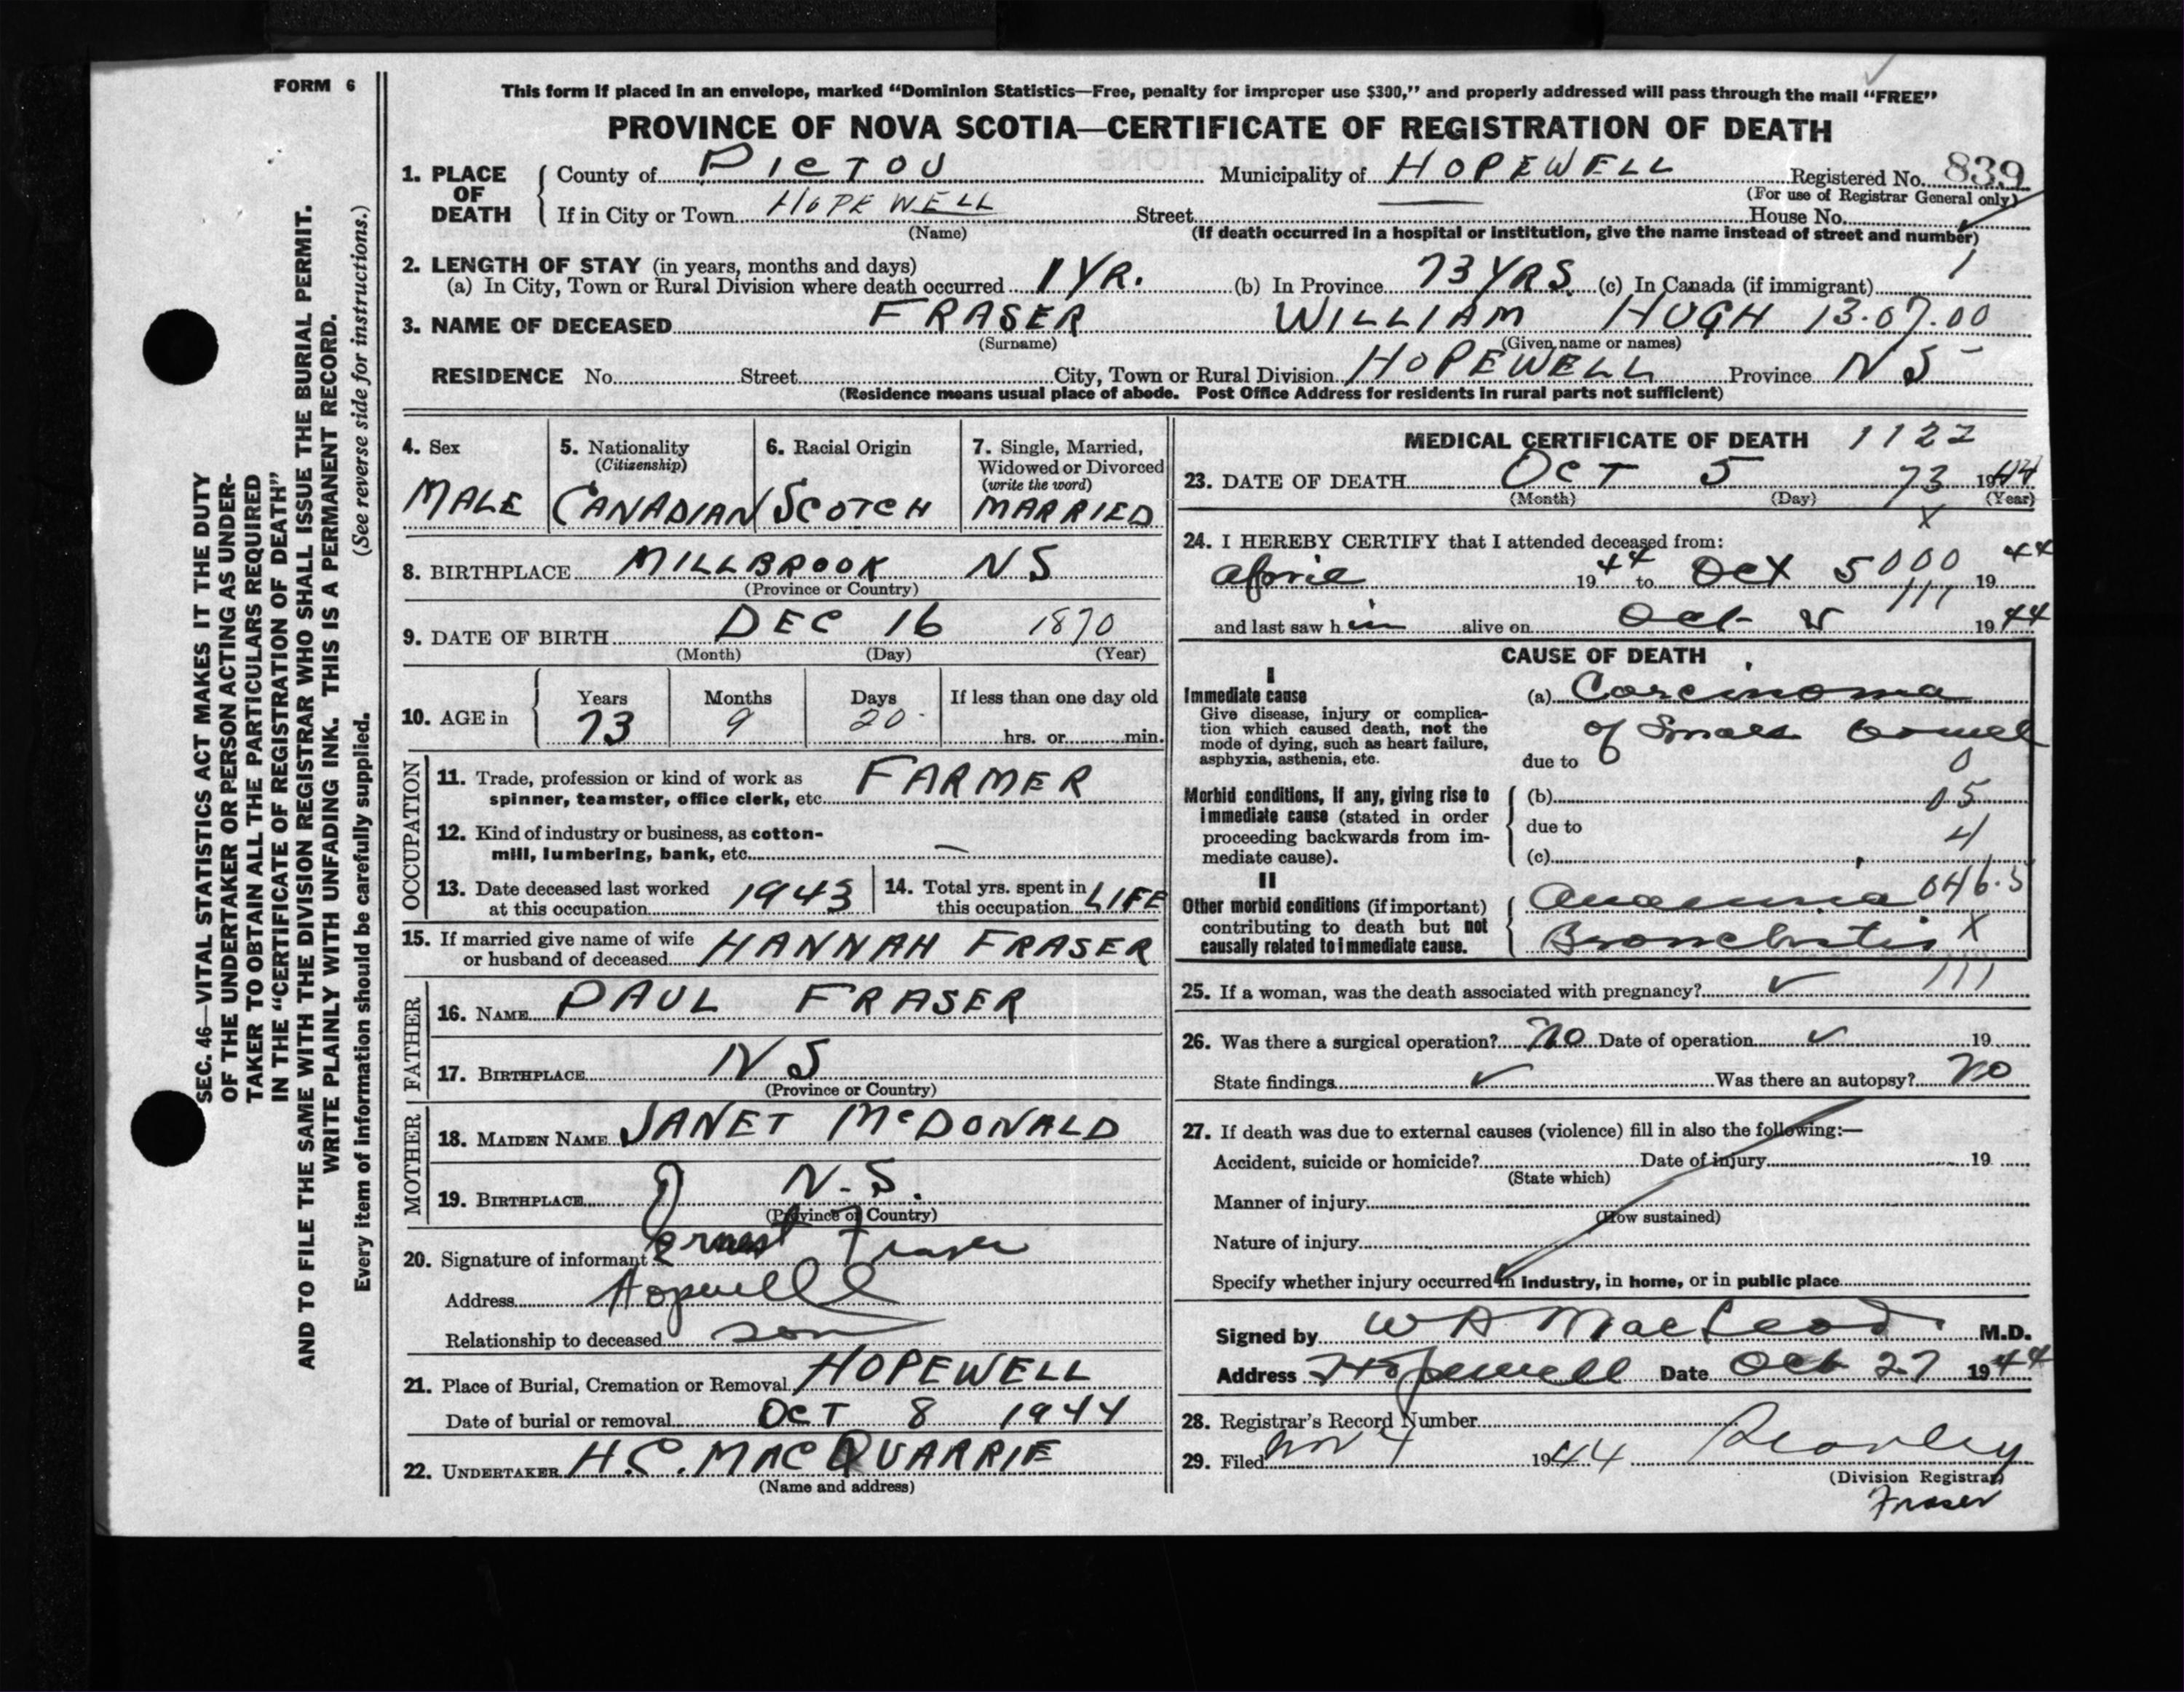 FORM 6
This form if placed in an envelope, marked “Dominion Statistics—Free, penalty for improper use $300,” and properly addressed will pass through the mail “FREE”
PROVINCE OF NOVA SCOTIA—CERTIFICATE OF REGISTRATION OF DEATH
SEC. 46—VITAL STATISTICS ACT MAKES IT THE DUTY
OF THE UNDERTAKER OR PERSON ACTING AS UNDER-
TAKER TO OBTAIN ALL THE PARTICULARS REQUIRED
IN THE “CERTIFICATE OF REGISTRATION OF DEATH”
AND TO FILE THE SAME WITH THE DIVISION REGISTRAR WHO SHALL ISSUE THE BURIAL PERMIT.
WRITE PLAINLY WITH UNFADING INK. THIS IS A PERMANENT RECORD.
Every item of information should be carefully supplied. (See reverse side for instructions.)
1. PLACE OF DEATH
County of PICTOU Municipality of HOPEWELL Registered No. 839
(For use of Registrar General only)
If in City or Town HOPEWELL Street House No.
(Name) (If death occurred in a hospital or institution, give the name instead of street and number)
2. LENGTH OF STAY (in years, months and days)
(a) In City, Town or Rural Division where death occurred 1 YR. (b) In Province 73 YRS. (c) In Canada (if immigrant) 1
3. NAME OF DECEASED FRASER WILLIAM HUGH 13.07.00
(Surname) (Given name or names)
RESIDENCE No. Street City, Town or Rural Division HOPEWELL Province N S
(Residence means usual place of abode. Post Office Address for residents in rural parts not sufficient)
4. Sex
MALE
5. Nationality
(Citizenship)
CANADIAN
6. Racial Origin
SCOTCH
7. Single, Married,
Widowed or Divorced
(write the word)
MARRIED
8. BIRTHPLACE MILLBROOK N S
(Province or Country)
9. DATE OF BIRTH DEC 16 1870
(Month) (Day) (Year)
10. AGE in
Years Months Days If less than one day old
73 9 20 hrs. or min.
OCCUPATION
11. Trade, profession or kind of work as
spinner, teamster, office clerk, etc. FARMER
12. Kind of industry or business, as cotton-
mill, lumbering, bank, etc. —
13. Date deceased last worked
at this occupation 1943
14. Total yrs. spent in
this occupation LIFE
15. If married give name of wife
or husband of deceased HANNAH FRASER
FATHER
16. NAME PAUL FRASER
17. BIRTHPLACE N S
(Province or Country)
MOTHER
18. MAIDEN NAME JANET McDONALD
19. BIRTHPLACE N.S.
(Province or Country)
20. Signature of informant Ernest Fraser
Address Hopewell
Relationship to deceased son
21. Place of Burial, Cremation or Removal HOPEWELL
Date of burial or removal OCT 8 1944
22. UNDERTAKER H.C. MACQUARRIE
(Name and address)
MEDICAL CERTIFICATE OF DEATH 1122
23. DATE OF DEATH OCT 5 73 1944
(Month) (Day) (Year)
X
24. I HEREBY CERTIFY that I attended deceased from:
April 1944 to Oct 5 000 1944
111
and last saw him alive on Oct 1944
CAUSE OF DEATH
I
Immediate cause
Give disease, injury or complica-
tion which caused death, not the
mode of dying, such as heart failure,
asphyxia, asthenia, etc.
(a) Carcinoma
of Small bowel
due to 0
Morbid conditions, if any, giving rise to
immediate cause (stated in order
proceeding backwards from im-
mediate cause).
(b) 05
due to 4
(c)
II
Other morbid conditions (if important)
contributing to death but not
causally related to immediate cause.
Anaemia 046.5
Bronchitis X
25. If a woman, was the death associated with pregnancy? ✓ 111
26. Was there a surgical operation? No Date of operation ✓ 19
State findings ✓ Was there an autopsy? No
27. If death was due to external causes (violence) fill in also the following:—
Accident, suicide or homicide? Date of injury 19
(State which)
Manner of injury
(How sustained)
Nature of injury
Specify whether injury occurred in industry, in home, or in public place
Signed by W A MacLeod M.D.
Address Hopewell Date Oct 27 1944
28. Registrar's Record Number
29. Filed Nov 4 1944
(Division Registrar)
Fraser